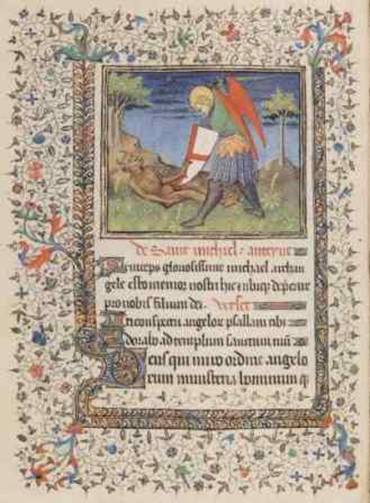 De Saint michiel. antenne
Princeps gloriosissime michael archan
gele esto memor nostri hic et ubique deprecare
pro nobis filium dei. Verset
In conspectu angelorum psallam tibi
adorabo ad templum sanctum tuum
Deus qui miro ordine angelo
rum ministeria hominum q